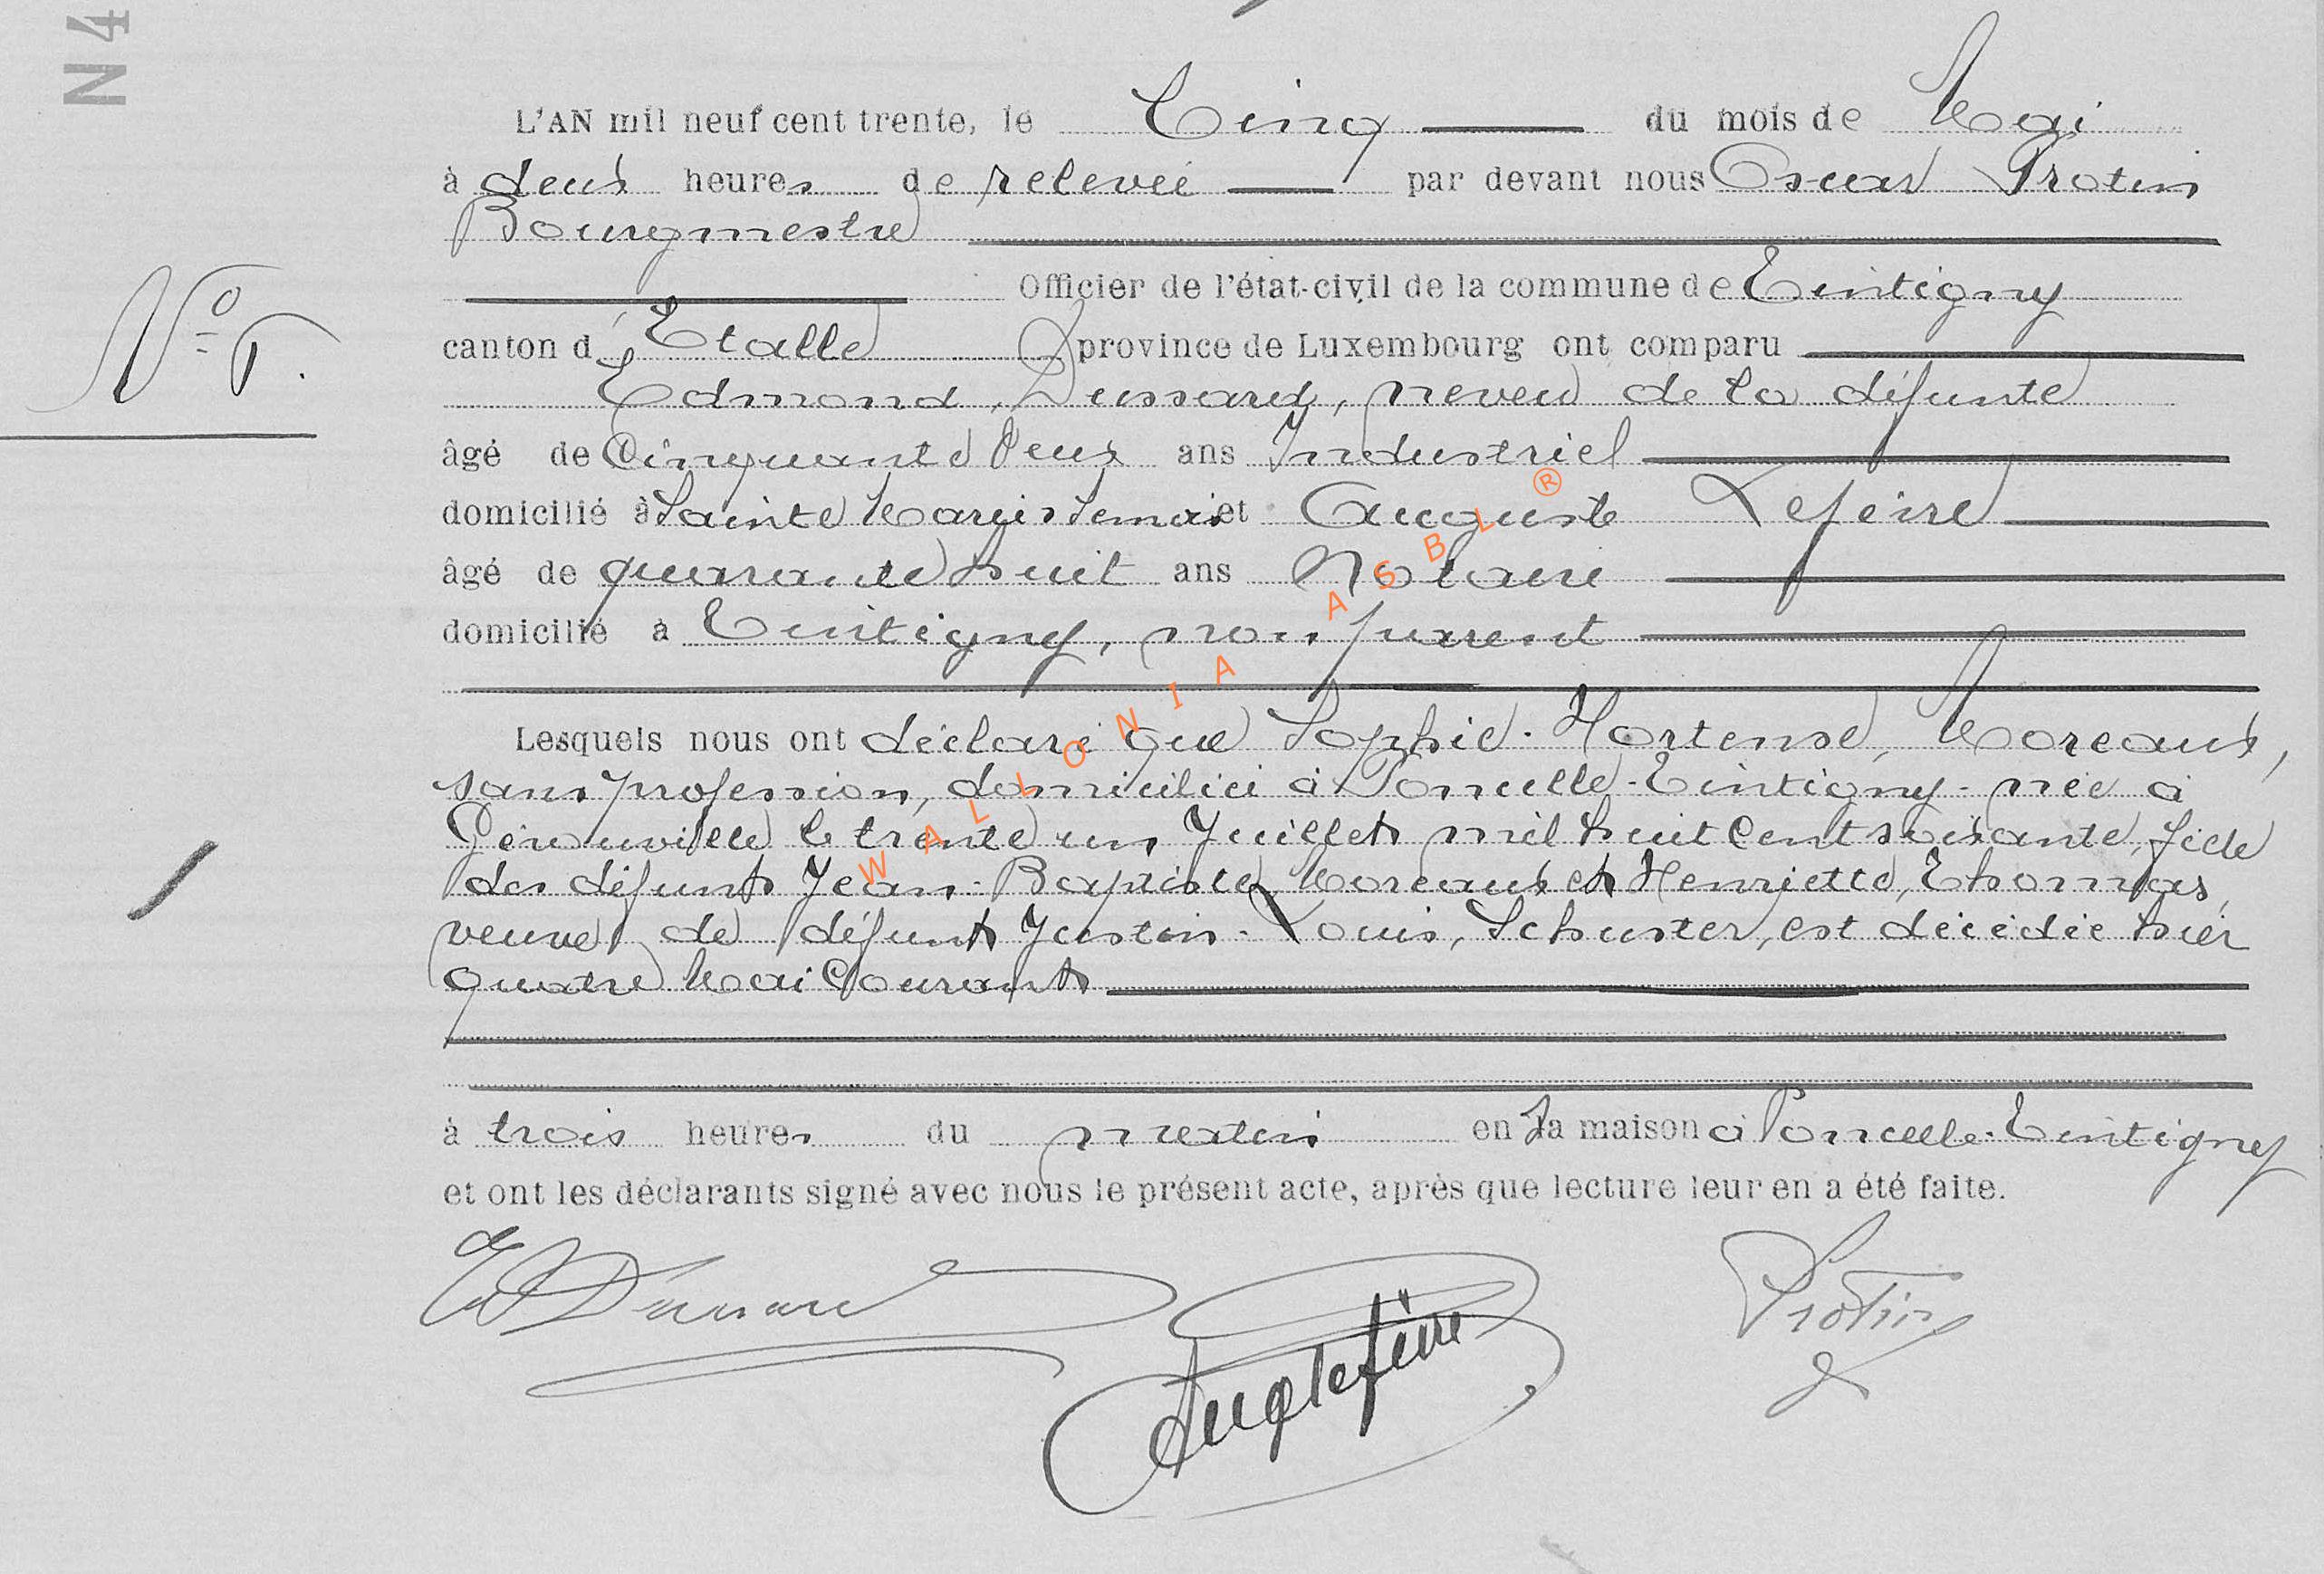 N 4
L'AN mil neuf cent trente, le Cinq du mois de Mai
à deux heures de relevée par devant nous Oscar Protin
Bourgmestre
Officier de l'état-civil de la commune de Tintigny
N°
canton d'Etalle province de Luxembourg ont comparu
Edmond, Dussard, neveu de la défunte
âgé de Cinquante deux ans Industriel
domicilié à Sainte Marie s Semois et Auguste Lefèvre
âgé de quarante huit ans Notaire
domicilié à Tintigny, non parent
Lesquels nous ont déclaré que Sophie-Hortense, Moreaux,
sans profession, domiciliée à Poncelle-Tintigny - née à
Gérouville le trente un Juillet mil huit Cent soixante, fille
des défunts Jean-Baptiste, Moreaux et Henriette, Thomas,
veuve de défunt Justin-Louis, Schuster, est décédée hier
quatre Mai Courant
à trois heures du matin en sa maison à Poncelle-Tintigny
et ont les déclarants signé avec nous le présent acte, après que lecture leur en a été faite.
Ed Dussard
Aug Lefèvre
Protin
WALLONIA ASBL ®